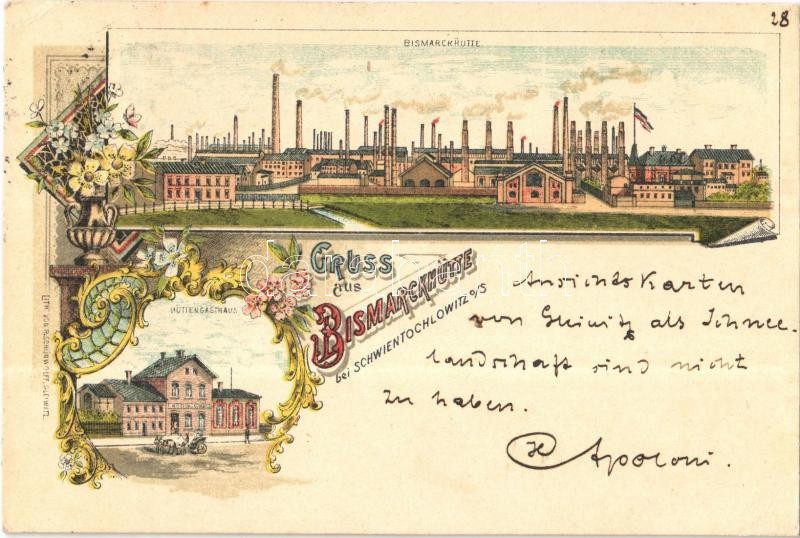 28
BISMARCKHÜTTE
Gruss
aus
BISMARCKHÜTTE
bei SCHWIENTOCHLOWITZ O/S
HÜTTENGASTHAUS
Ansichtskarten
von Gleiwitz als Schnee
landschaft sind nicht
zu haben.
Apoloni.